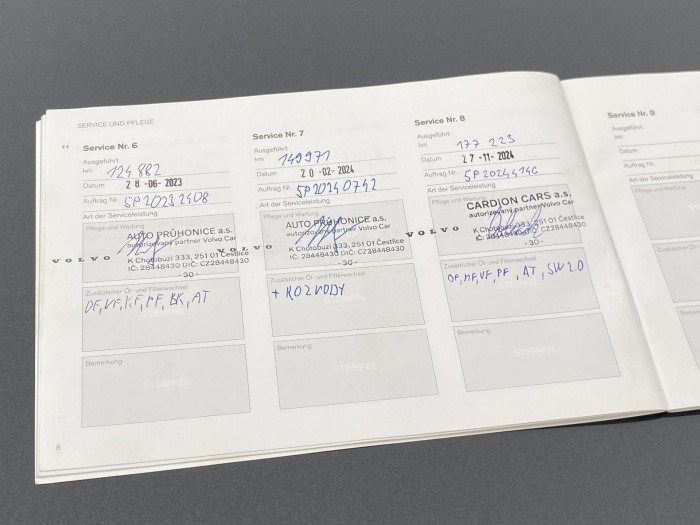 SERVICE UND PFLEGE
Service Nr. 6
Ausgeführt
km 124 882
Datum 28 -06- 2023
Auftrag Nr. SP2023 2408
Art der Serviceleistung
Pflege und Wartung
AUTO PRŮHONICE a.s.
autorizovaný partner Volvo Car
VOLVO
K Chotobuzi 333, 251 01 Čestlice
IČ: 28448430 DIČ: CZ28448430
- 30 -
Zusätzlicher Öl- und Filterwechsel
OF, VF, KF, PF, BK, AT
Bemerkung
STEMPEL
8
Service Nr. 7
Ausgeführt
km 149971
Datum 20 -02- 2024
Auftrag Nr. SP2024 0742
Art der Serviceleistung
Pflege und Wartung
AUTO PRŮHONICE a.s.
autorizovaný partner Volvo Car
VOLVO
K Chotobuzi 333, 251 01 Čestlice
IČ: 28448430 DIČ: CZ28448430
- 30 -
Zusätzlicher Öl- und Filterwechsel
+ ROZVODY
Bemerkung
STEMPEL
Service Nr. 8
Ausgeführt
km 177 223
Datum 27 -11- 2024
Auftrag Nr.
Art der Serviceleistung
CARDION CARS a.s.
autorizovaný partner Volvo Car
VOLVO
K Chotobuzi 333, 251 01 Čestlice
IČ: 28448430 DIČ: CZ28448430
- 30 -
Zusätzlicher Öl- und Filterwechsel
AT, SW 2.0
Bemerkung
STEMPEL
Service Nr. 9
Ausgeführt
km
Datum
Auftrag Nr.
Art der Serviceleistung
Pflege und Wartung
Bemerkung